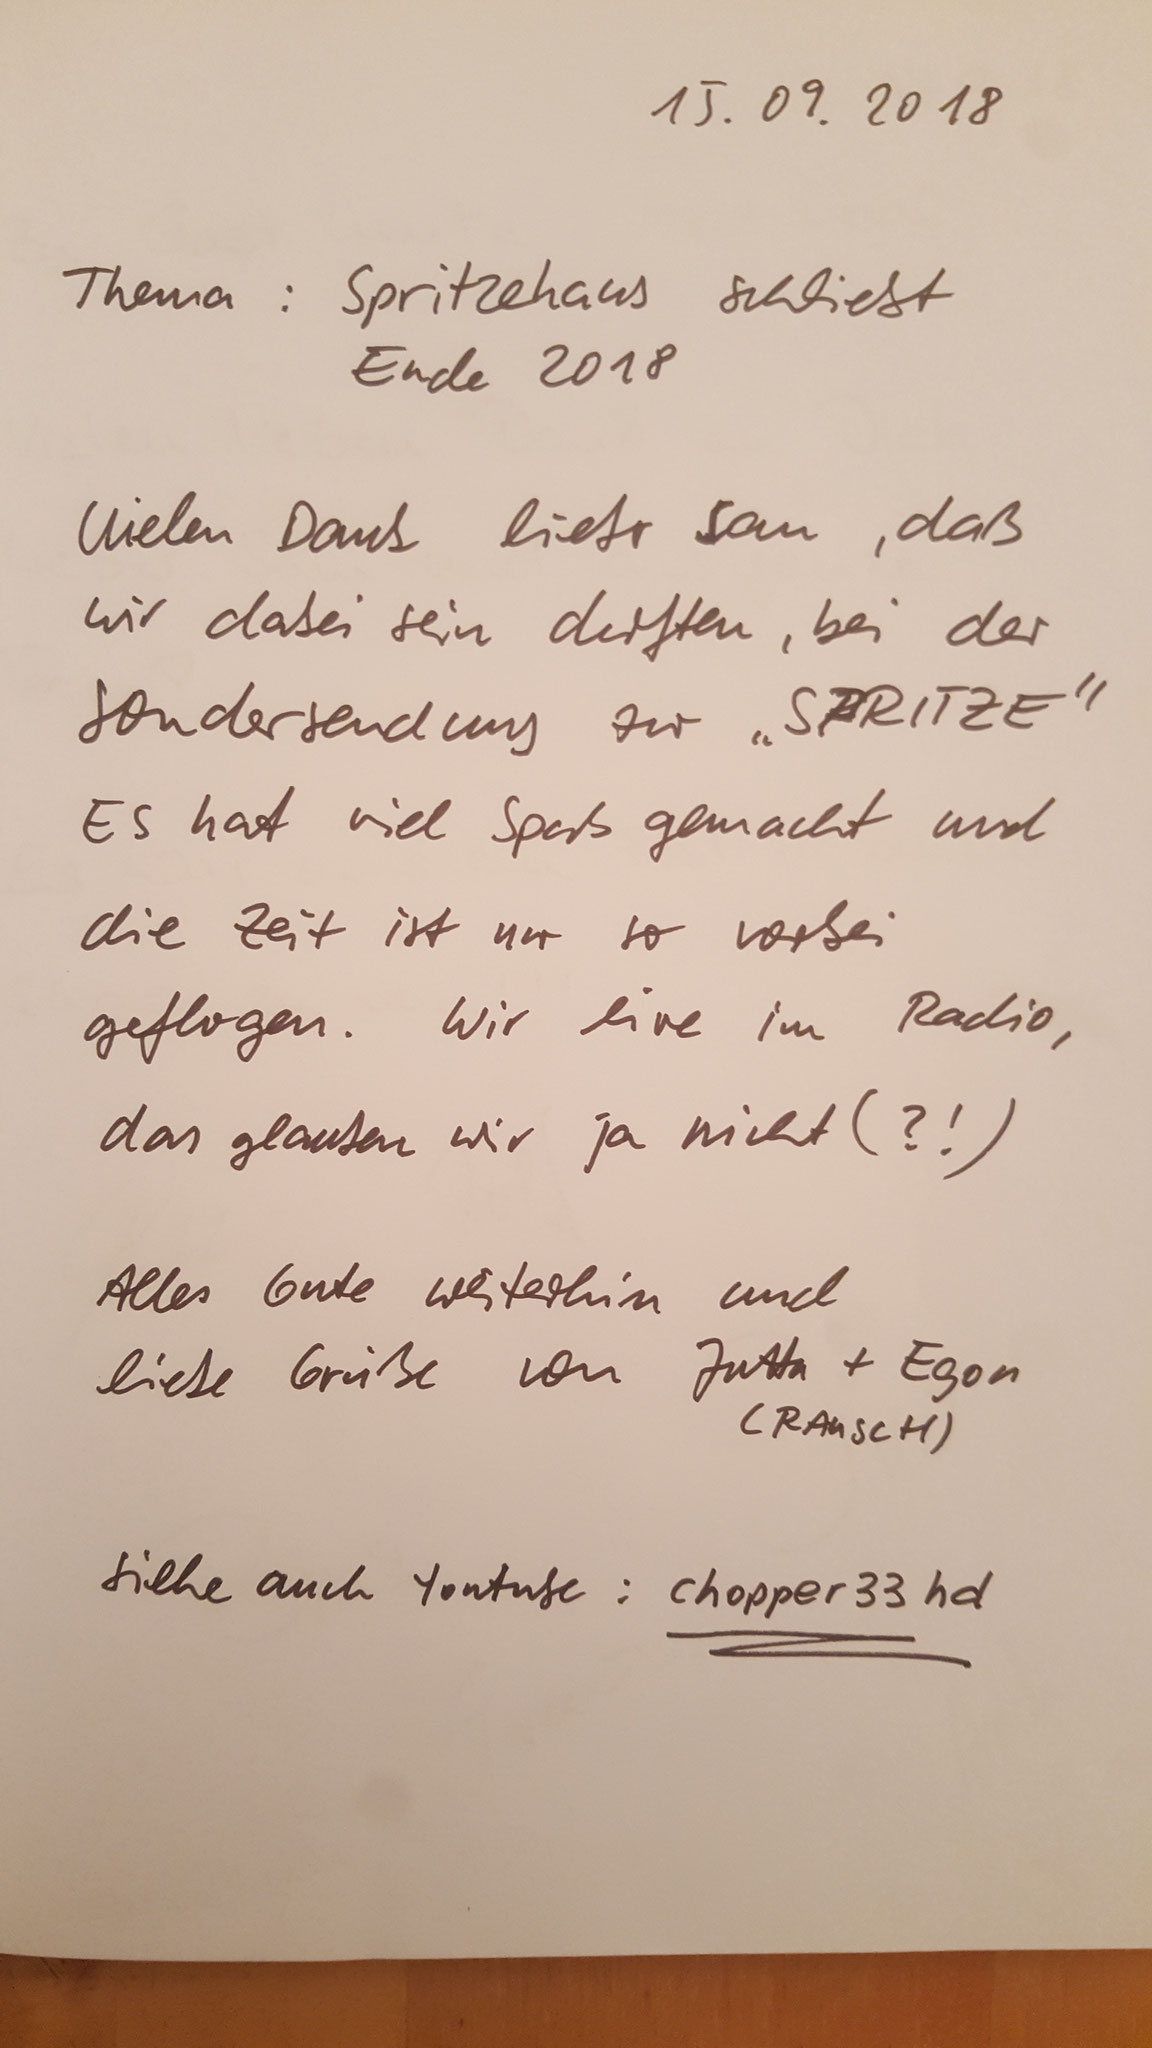 15.09.2018
Thema : Spritzehaus schließt
Ende 2018
Vielen Dank lieber Sam, daß
wir dabei sein durften, bei der
Sondersendung zur „SPRITZE“
Es hat viel Spaß gemacht und
die Zeit ist nur so vorbei
geflogen. Wir live im Radio,
das glauben wir ja nicht (?!)
Alles Gute weiterhin und
liebe Grüße von Jutta + Egon
(RAUSCH)
siehe auch Youtube : chopper33hd